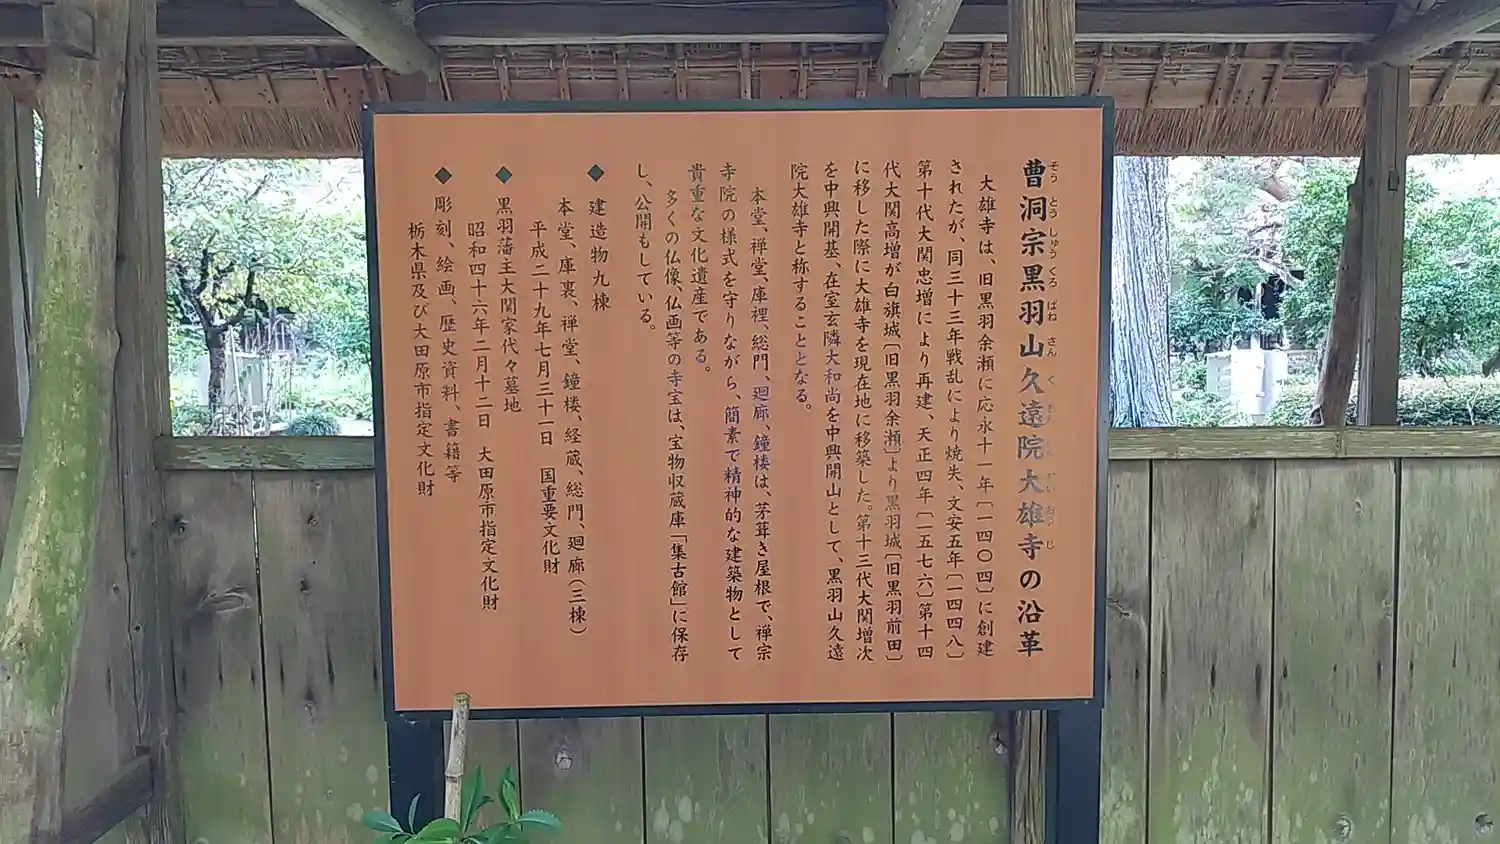 曹洞宗黒羽山久遠院大雄寺の沿革
大雄寺は、旧黒羽余瀬に応永十一年〔一四〇四〕に創建
されたが、同三十三年戦乱により焼失、文安五年〔一四四八〕
第十代大関忠増により再建、天正四年〔一五七六〕第十四
代大関高増が白旗城〔旧黒羽余瀬〕より黒羽城〔旧黒羽前田〕
に移した際に大雄寺を現在地に移築した。第十三代大関増次
を中興開基、在室玄隣大和尚を中興開山として、黒羽山久遠
院大雄寺と称することとなる。
本堂、禅堂、庫裡、総門、廻廊、鐘楼は、茅葺き屋根で、禅宗
寺院の様式を守りながら、簡素で精神的な建築物として
貴重な文化遺産である。
多くの仏像、仏画等の寺宝は、宝物収蔵庫「集古館」に保存
し、公開もしている。
◆建造物九棟
本堂、庫裏、禅堂、鐘楼、経蔵、総門、廻廊(三棟)
平成二十九年七月三十一日 国重要文化財
◆黒羽藩主大関家代々墓地
昭和四十六年二月十二日 大田原市指定文化財
◆彫刻、絵画、歴史資料、書籍等
栃木県及び大田原市指定文化財